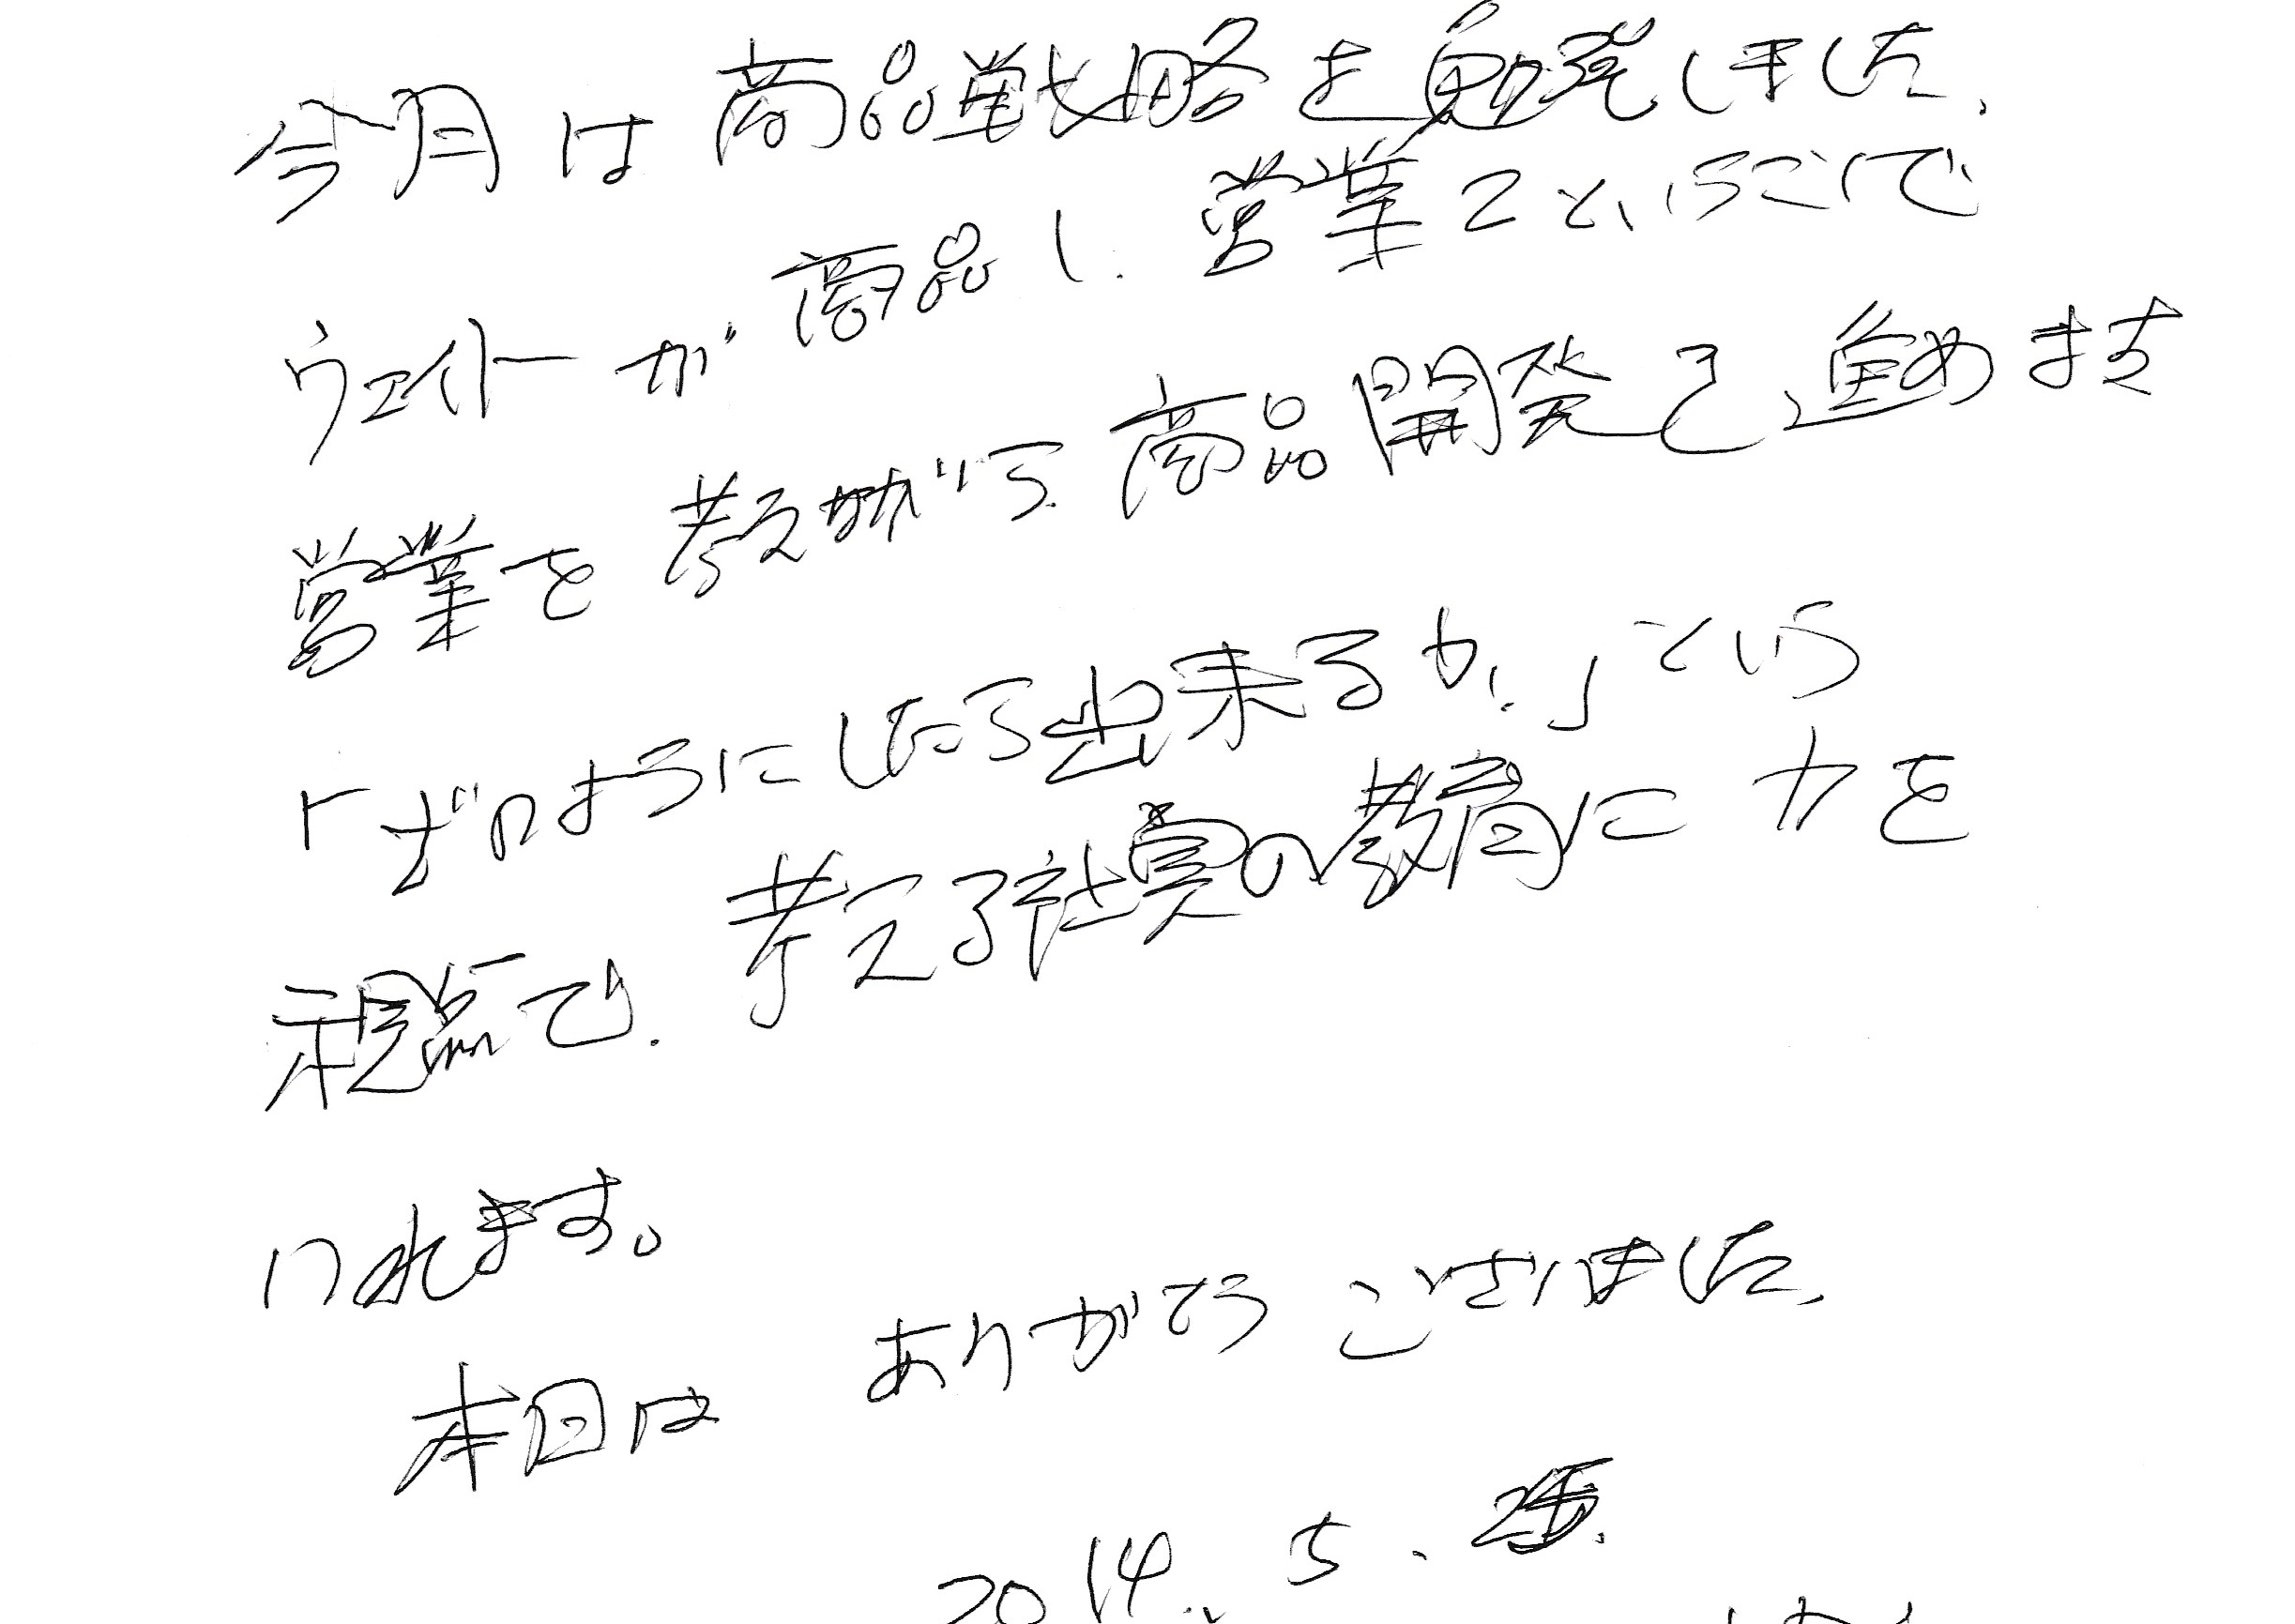 今月は商品戦略を勉強しました、
ウェイトーが商品1. 営業2ということで
営業を考えながら、商品開発を進めます
「どのようにしたら出来るか、」という
視点で、考える社員の教育に力を
入れます。
本日は ありがとうございました、
2014. 5.